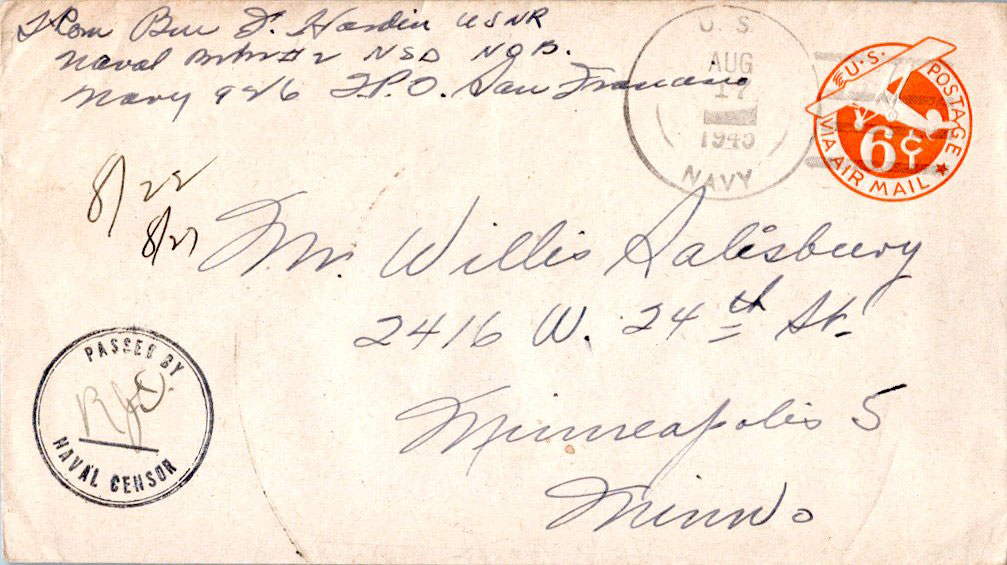 From Ben F. Hardin USNR
Naval NSD NOB.
Navy 926 F.P.O. San Francisco
U. S.
AUG
17
1945
NAVY
U.S. POSTAGE
6¢
VIA AIR MAIL
8/22
8/27
Mr. Willis Salisbury
2416 W. 24th St.
Minneapolis 5
Minn.
PASSED BY
NAVAL CENSOR